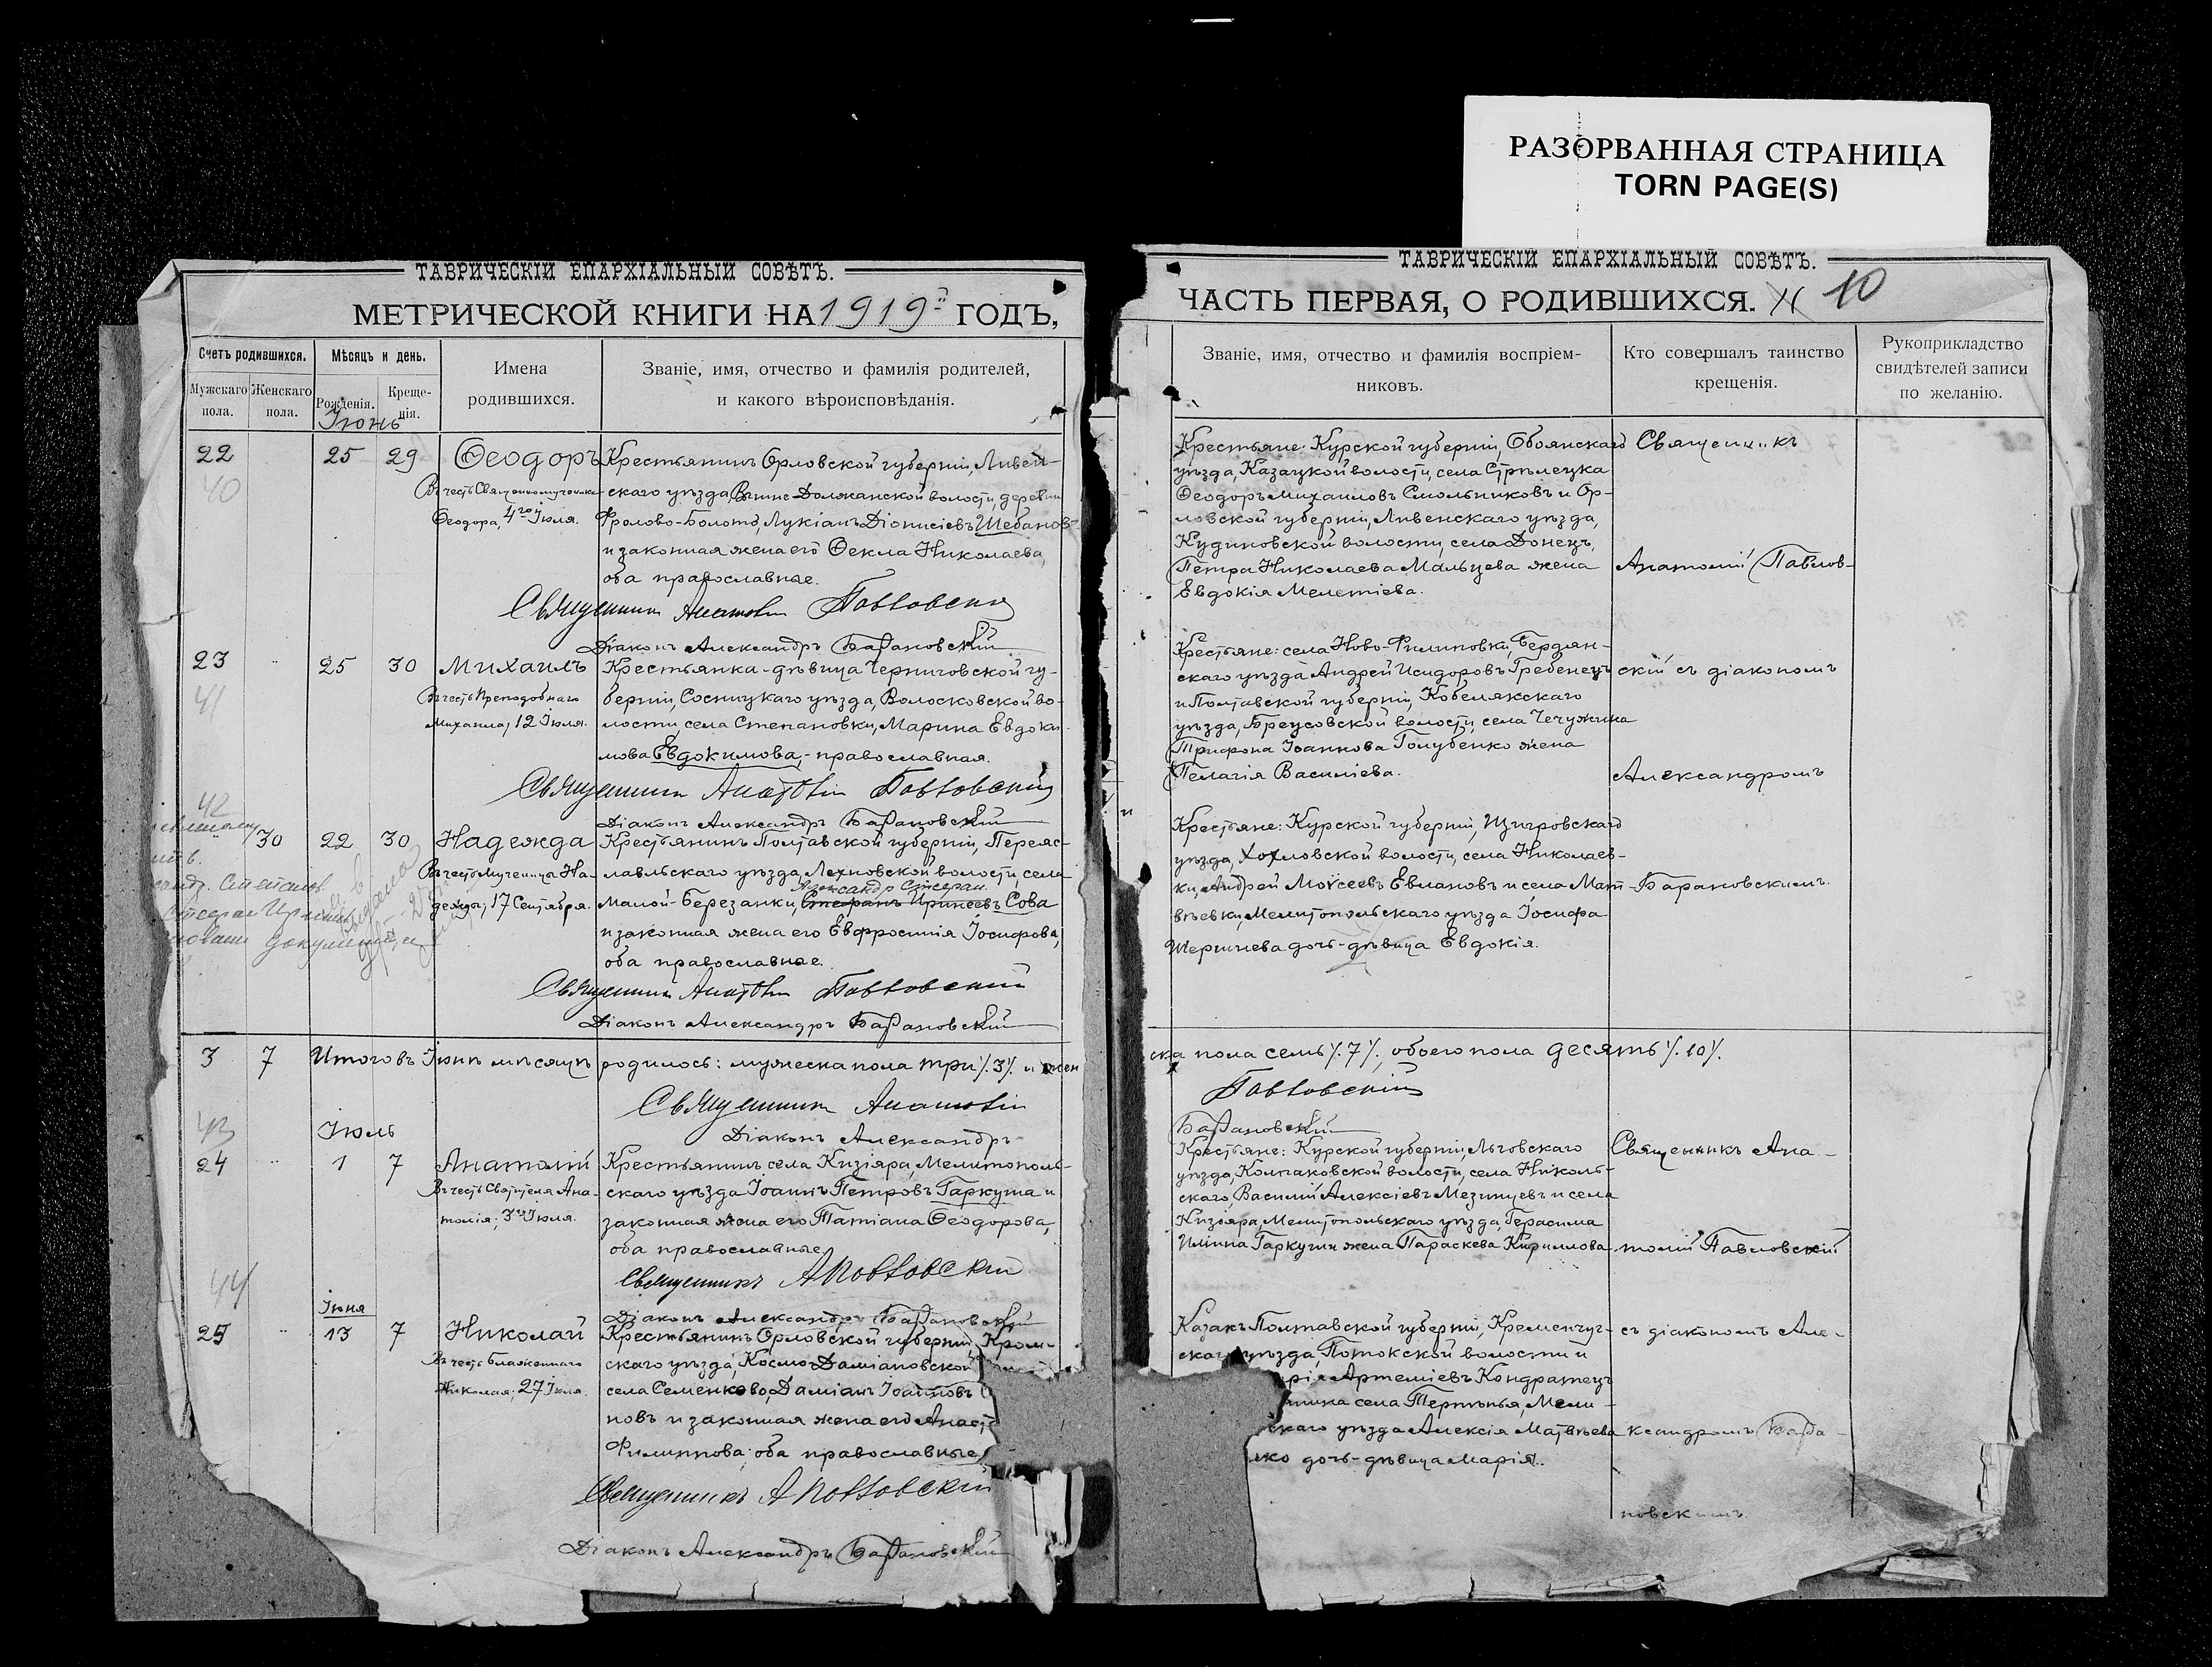 РАЗОРВАННАЯ СТРАНИЦА
TORN PAGE(S)
ТАВРИЧЕСКІЙ ЕПАРХІАЛЬНЫЙ СОВѢТЪ.
МЕТРИЧЕСКОЙ КНИГИ НА 1919й ГОДЪ,
Счетъ родившихся.
Мѣсяцъ и день.
Мужскаго пола.
Женскаго пола.
Рожденія.
Креще-
нія.
Имена
родившихся.
Званіе, имя, отчество и фамилія родителей,
и какого вѣроисповѣданія.
Іюнь
22 25 29 Ѳеодоръ Крестьянинъ Орловской губерніи, Ливен-
40
Въ честь Священномученика скаго уѣзда, Должанской волости, деревни
Ѳеодора, 4го Іюля. Фролово-Болото, Лукіанъ Діонисіевъ Шебанов
и законная жена его Ѳекла Николаева,
оба православные.
Священникъ Анатолій Павловскій
Діаконъ Александръ Барановскій
23 " 25 30 Михаилъ Крестьянка-дѣвица Черниговской гу-
41
Въ честь Преподобнаго берніи, Сосницкаго уѣзда, Волосковской во-
Михаила; 12 Іюля. лости, села Степановки, Марина Евдоки
мова Евдокимова, - православная.
Священникъ Анатолій Павловскій
Діаконъ Александръ Барановскій
42
30 22 30 Надежда Крестьянинъ Полтавской губерніи, Переяс-
Въ честь Мученицы На- лавльскаго уѣзда, Лехновской волости, села
Александр Стефан.
дежды; 17 Сентября. Малой-Березанки, Стефанъ Иринеевъ Сова
и законная жена его Евфросинія Іосифова,
оба православные.
Священникъ Анатолій Павловскій
Діаконъ Александръ Барановскій
3 7 Итого въ Іюнѣ мѣсяцѣ родилось: мужеска пола три /.3/. и жен
Священникъ Анатолій
Діаконъ Александръ
43 Іюль
24 " 1 7 Анатолій Крестьянинъ села Кизіяра, Мелитополь-
Въ честь Святителя Ана- скаго уѣзда Іоаннъ Петровъ Гаркуша и
толія; 3го Іюля. законная жена его Татіана Ѳеодорова,
оба православные.
Священникъ А Павловскій
Діаконъ Александръ Барановскій
44
Іюня
25 " 13 7 Николай Крестьянинъ Орловской губерніи, Кром-
Въ честь Блаженнаго скаго уѣзда, Космо-Даміановской
Николая; 27 Іюля. села Семенково, Даміанъ Іоанновъ
новъ и законная жена его Анаст
Филиппова; оба православные
Священникъ А Павловскій
Діаконъ Александръ Барановскій
ТАВРИЧЕСКІЙ ЕПАРХІАЛЬНЫЙ СОВѢТЪ.
ЧАСТЬ ПЕРВАЯ, О РОДИВШИХСЯ. 10
Званіе, имя, отчество и фамилія воспріем-
никовъ.
Кто совершалъ таинство
крещенія.
Рукоприкладство
свидѣтелей записи
по желанію.
Крестьяне: Курской губерніи, Обоянскаго Священникъ
уѣзда, Казацкой волости, села Стрѣлецка
Ѳеодоръ Михаиловъ Смольниковъ и Ор-
ловской губерніи, Ливенскаго уѣзда,
Кудиновской волости, села Донецъ,
Петра Николаева Мальцева жена Анатолій Павлов-
Евдокія Мелетіева.
Крестьяне: села Ново-Филиповки, Бердян-
скаго уѣзда Андрей Исидоровъ Гребенецъ скій съ діакономъ
и Полтавской губерніи, Кобелякскаго
уѣзда, Бреусовской волости, села Чечужина
Трифона Іоаннова Голубенко жена
Пелагія Василіева. Александромъ
Крестьяне: Курской губерніи, Щигровскаго
уѣзда, Хохловской волости, села Николаев-
ки, Андрей Моисеевъ Евлановъ и села Мат- Барановскимъ.
вѣевки, Мелитопольскаго уѣзда Іосифа
Шершнева дочь-дѣвица Евдокія.
ска пола семь /.7/., обоего пола десять /.10/.
Павловскій
Барановскій
Крестьяне: Курской губерніи, Льговскаго Священникъ Ана-
уѣзда, Колпаковской волости, села Николь-
скаго, Василій Алексіевъ Мезинцевъ и села
Кизіяра, Мелитопольскаго уѣзда, Герасима
Иліина Гаркуши жена Параскева Кириллова. толій Павловскій
Казакъ Полтавской губерніи, Кременчуг- съ діакономъ Але-
скаго уѣзда, Потокской волости и
Артеміевъ Кондратецъ
села Терпѣнья, Мели-
скаго уѣзда Алексія Матвѣева ксандромъ Бара-
ко дочь-дѣвица Марія.
новскимъ.